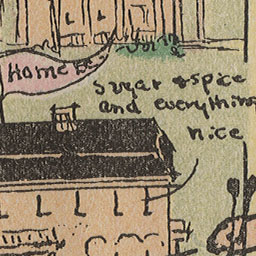 Home
Sugar & spice
and everything
nice